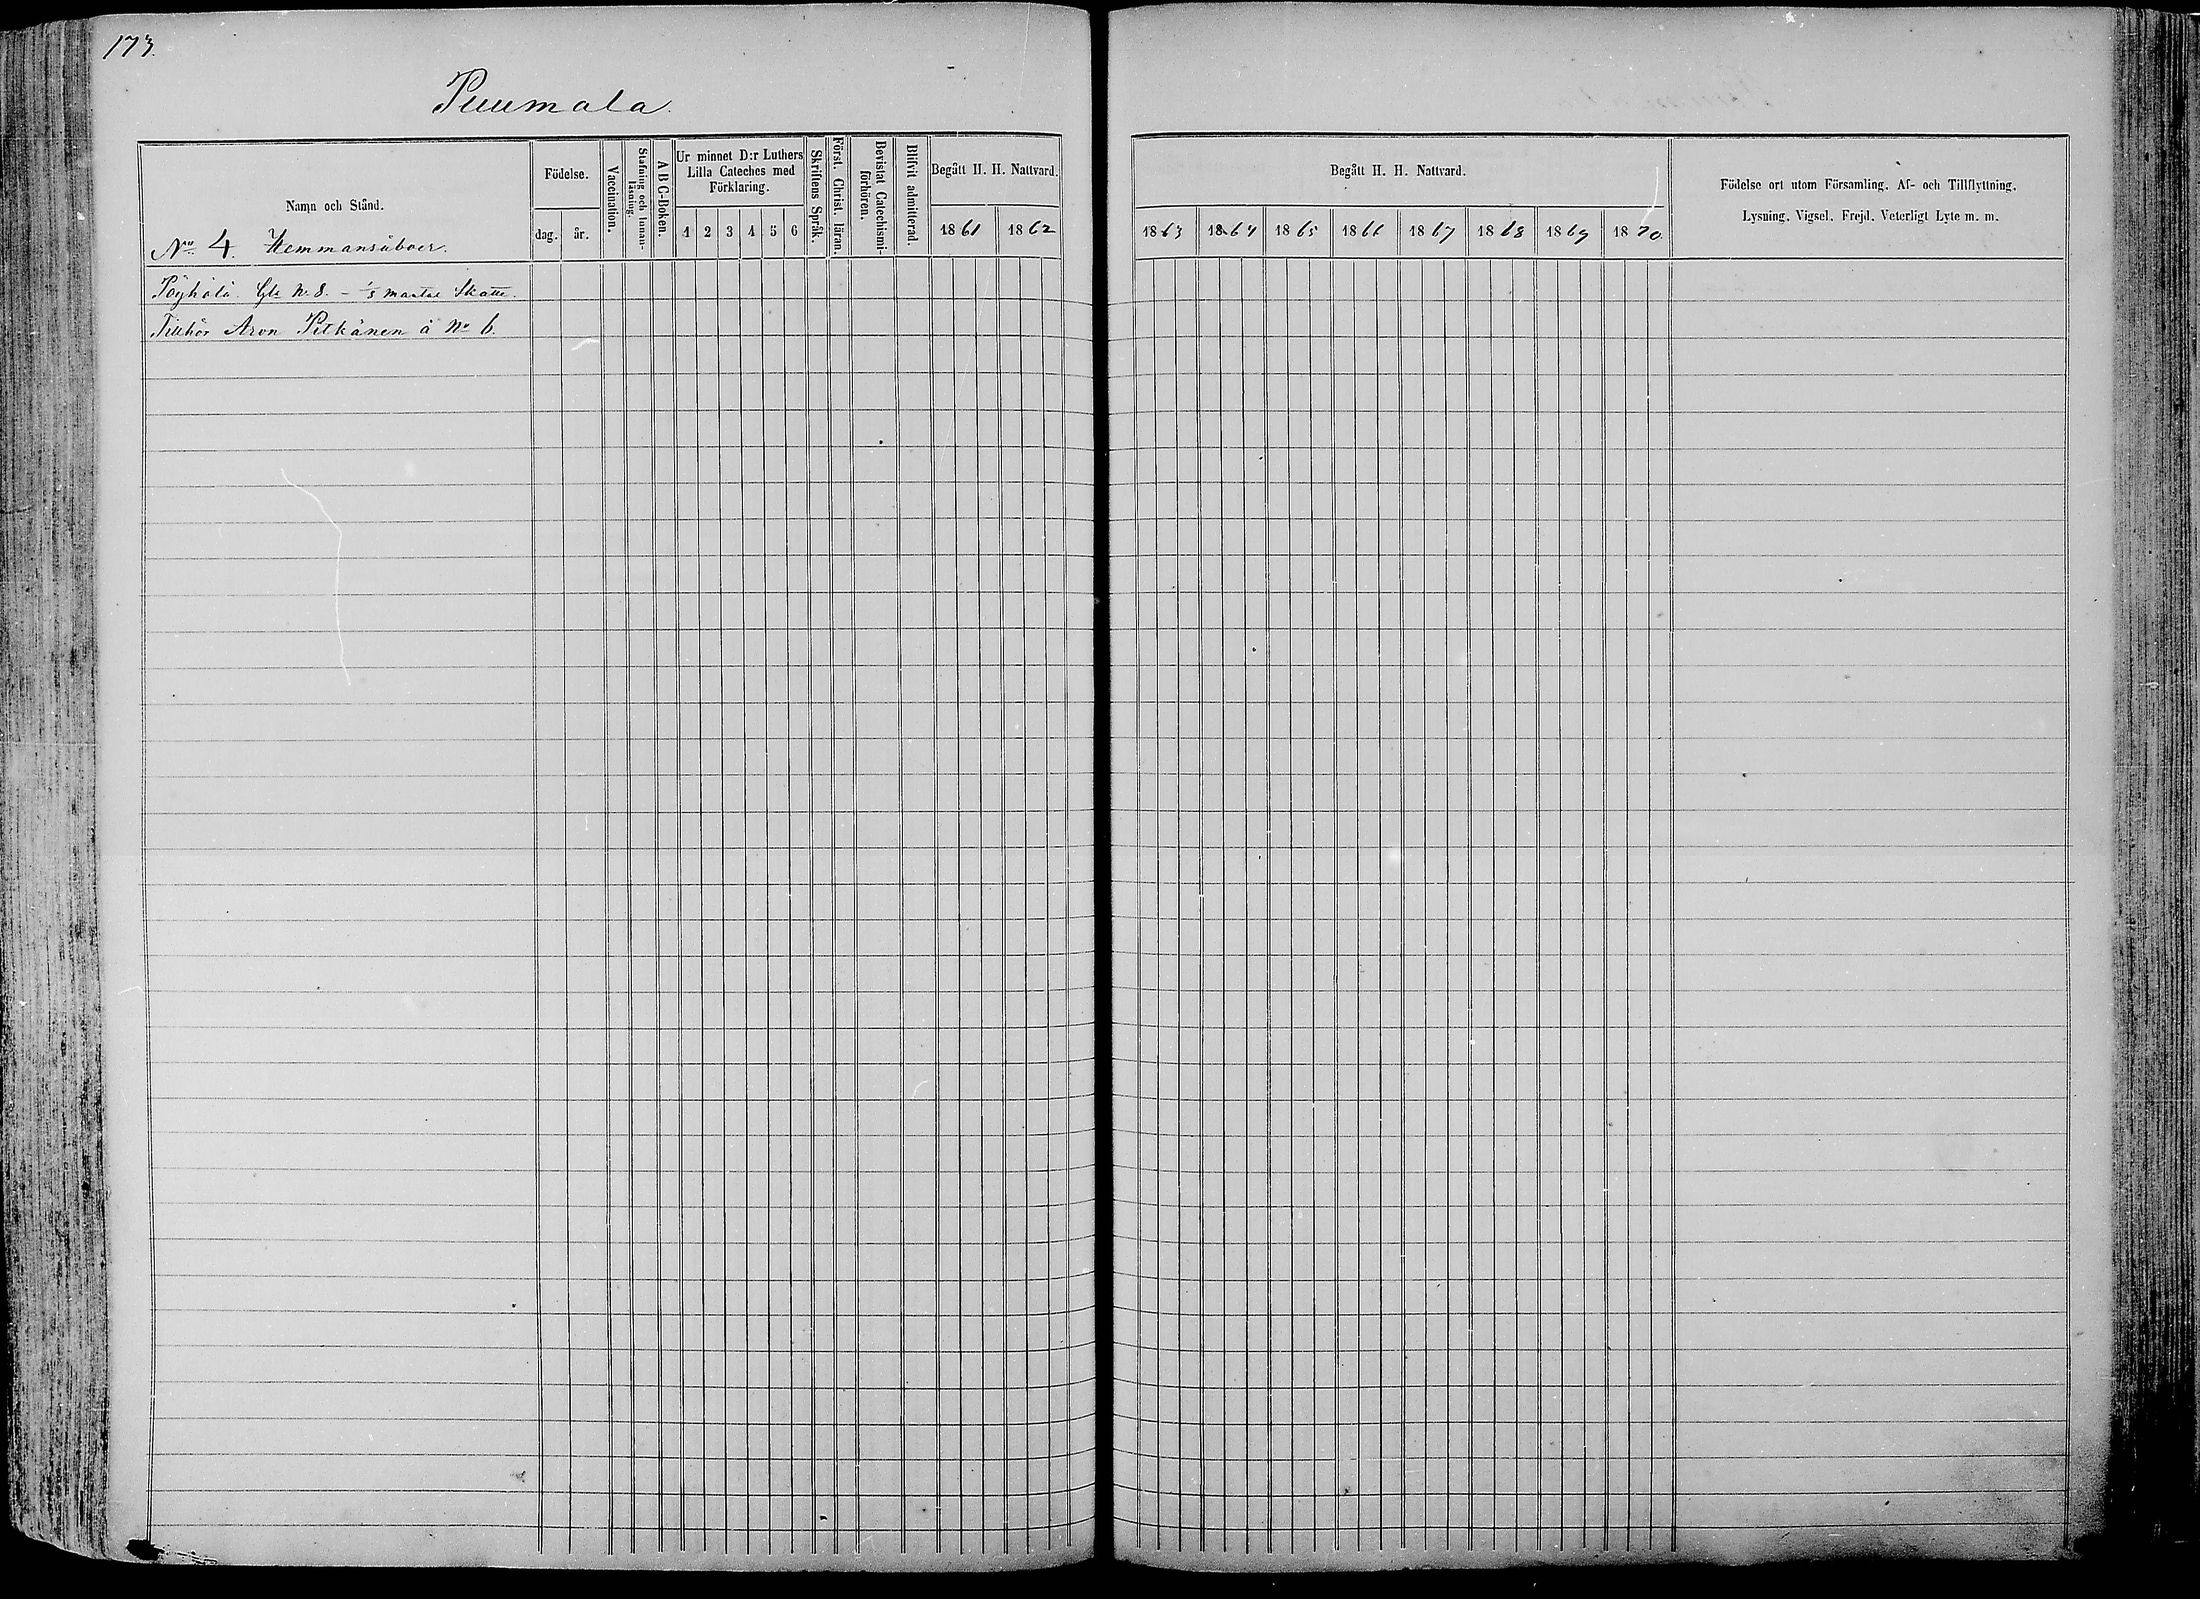 173.
Puumala.
Namn och Stånd.
No 4. Hemmansåboer.
Födelse.
dag. år.
Vaccination.
Stafning och Innan-läsning.
A B C-Boken.
Ur minnet D:r Luthers
Lilla Cateches med
Förklaring.
1 2 3 4 5 6
Skriftens Språk.
Först. Christ. läran.
Bevistat Catechismi-förhören.
Blifvit admitterad.
Begått H. H. Nattvard.
1861 1862
Pöyhölä. Gle No 8. – 1/8 mantal Skatte.
Tillhör Aron Pitkänen å No 6.
Begått H. H. Nattvard.
1863 1864 1865 1866 1867 1868 1869 1870.
Födelse ort utom Församling. Af- och Tillflyttning.
Lysning. Vigsel. Frejd. Veterligt Lyte m. m.